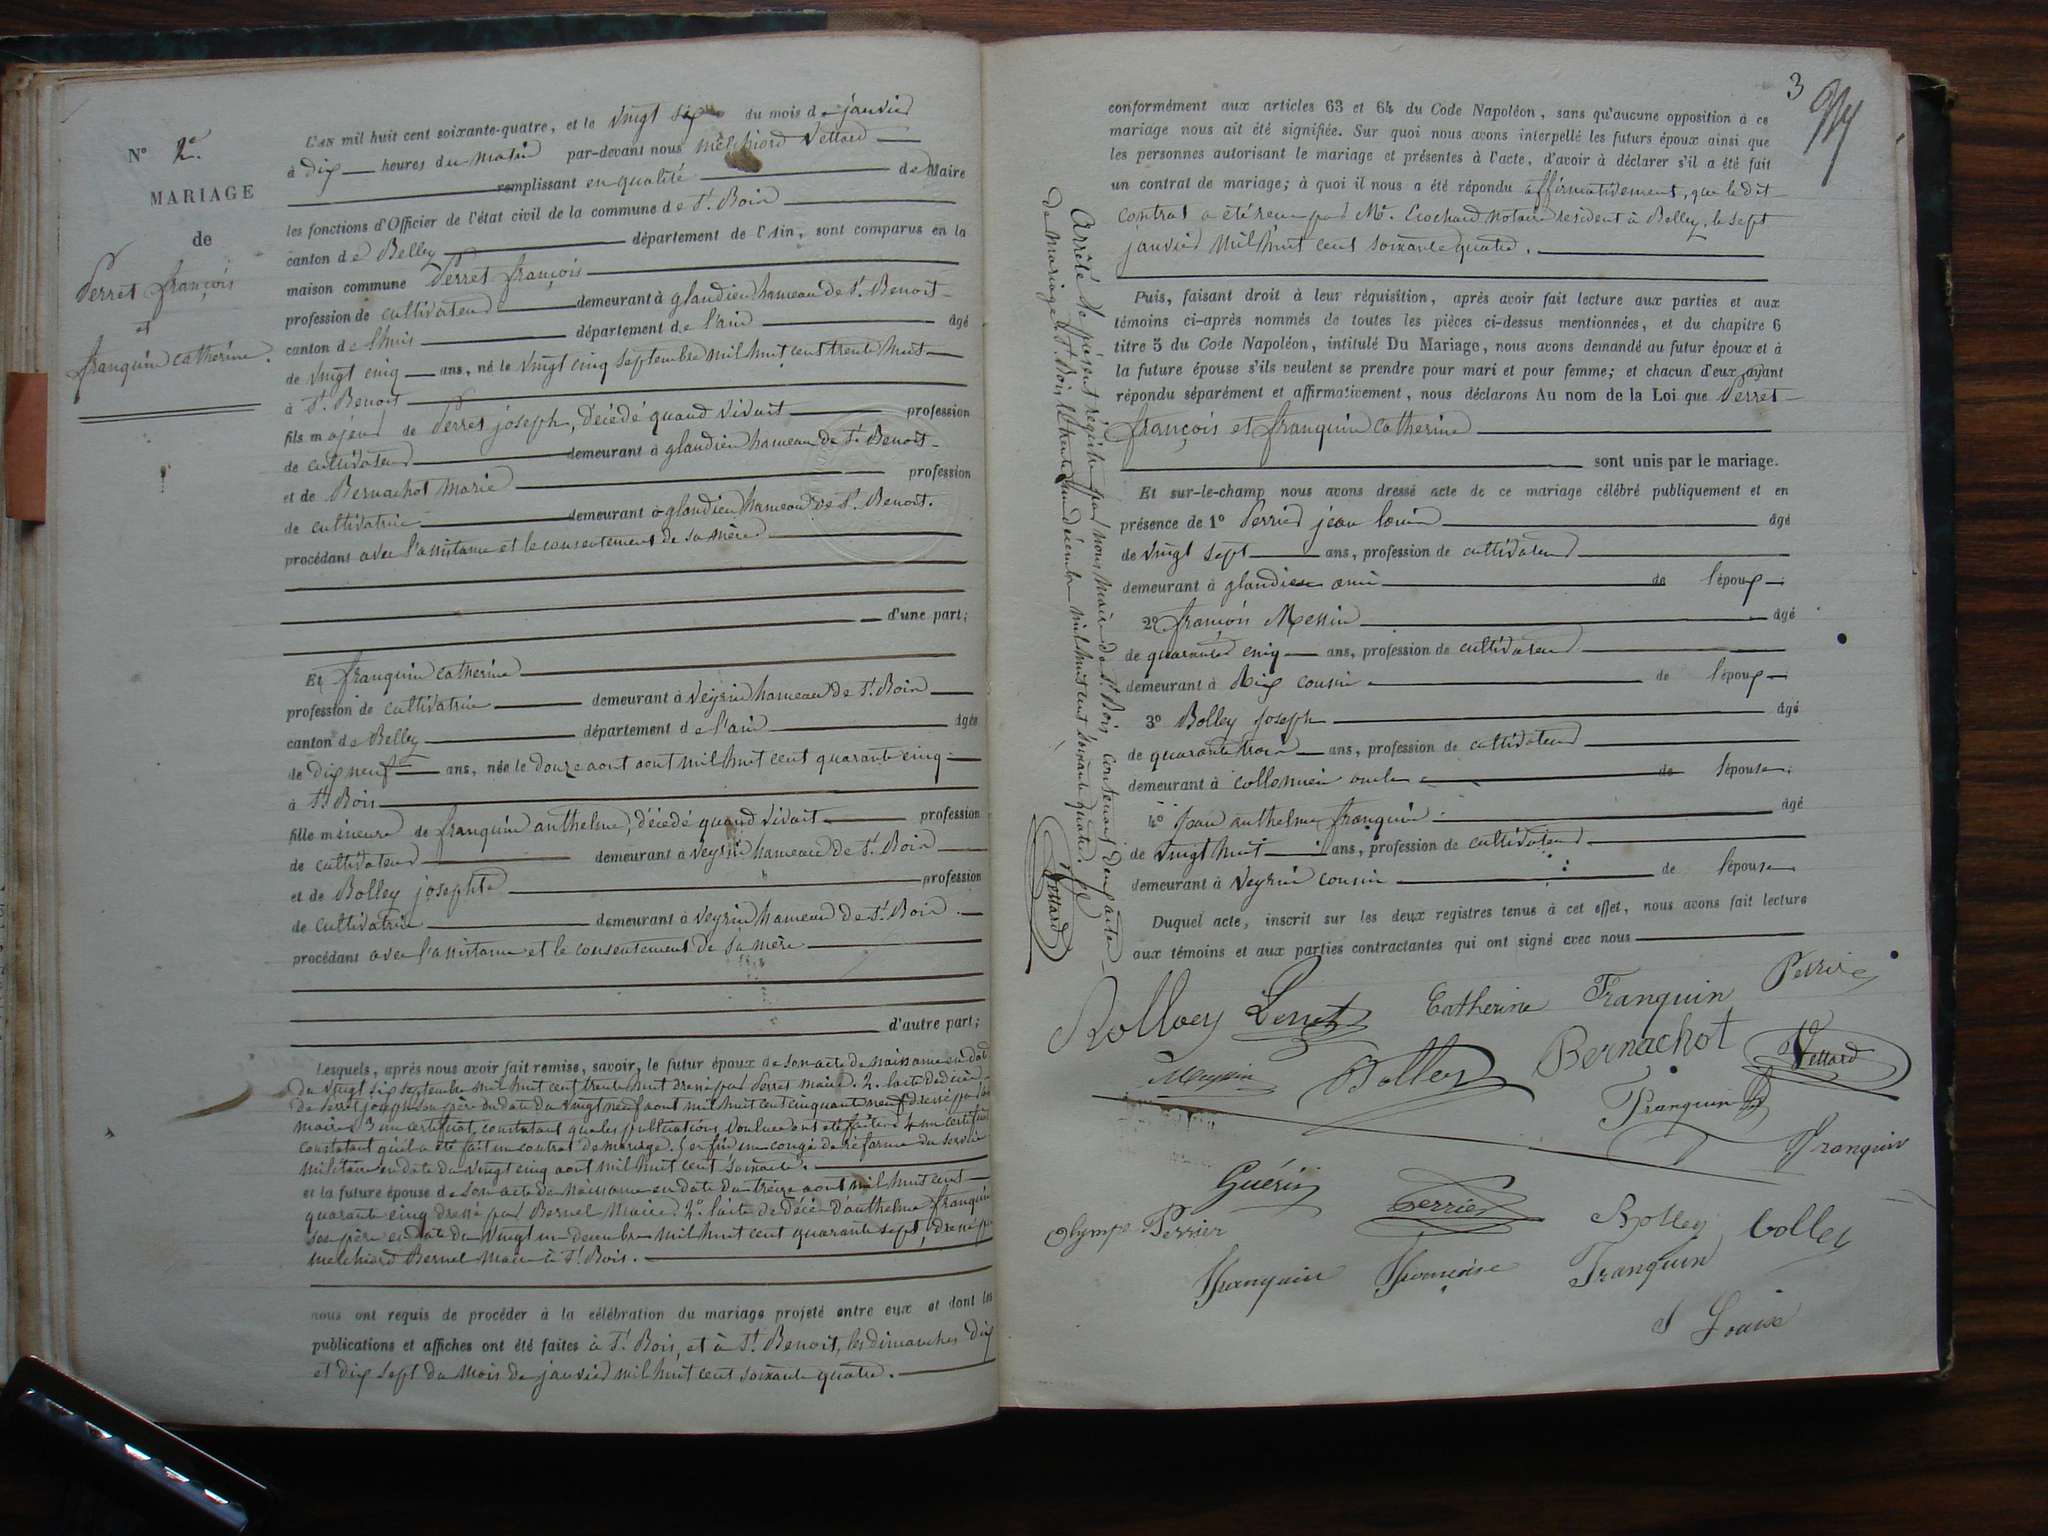 N° 2e
MARIAGE
de
Perret françois
et
franquin catherine.
L'AN mil huit cent soixante-quatre, et le vingt six du mois de janvier
à dix heures du matin par-devant nous melchiord Vettard
remplissant en qualité de Maire
les fonctions d'Officier de l'état civil de la commune de St. Bois
canton de Belley département de l'Ain, sont comparus en la
maison commune Perret françois
profession de cultivateur demeurant à glandieu hameau de St. Benoit
canton de l'huis département de l'ain âgé
de vingt cinq ans, né le vingt cinq septembre mil huit cent trente huit
à St. Benoit
fils majeur de Perret joseph, décédé quand vivait profession
de cultivateur demeurant à glandieu hameau de St. Benoit
et de Bernachot Marie profession
de cultivatrice demeurant à glandieu hameau de St. Benoit.
procédant avec l'assistance et le consentement de sa mère
d'une part;
Et franquin catherine
profession de cultivatrice demeurant à Veyrin hameau de St. Bois
canton de Belley département de l'ain âgée
de dix neuf ans, née le douze aout aout mil huit cent quarante cinq
à St. Bois
fille mineure de franquin anthelme, décédé quand vivait profession
de cultivateur demeurant à Veyrin hameau de St. Bois
et de Bolley josephte profession
de cultivatrice demeurant à Veyrin hameau de St. Bois
procédant avec l'assistance et le consentement de sa mère
d'autre part;
Lesquels, après nous avoir fait remise, savoir, le futur époux de son acte de naissance en date
du vingt six septembre mil huit cent trente huit dressé par Perret maire. 2. l'acte de décès
de Perret joseph son père en date du vingt neuf aout mil huit cent cinquante neuf dressé par
maire 3 un certificat, constatant que les publications voulues ont été faites 4 un certificat
constatant qu'il a été fait un contrat de mariage. 5 enfin un congé de réforme du service
militaire en date du vingt cinq aout mil huit cent soixante.
et la future épouse de son acte de naissance en date du treize aout mil huit cent
quarante cinq dressé par Bernel Maire. 2° l'acte de décès d'anthelme franquin
son père en date du vingt un decembre mil huit cent quarante sept, dressé par
melchiord Bernel Maire à St. Bois.
nous ont requis de procéder à la célébration du mariage projeté entre eux et dont les
publications et affiches ont été faites à St. Bois, et à St. Benoit, les dimanches dix
et dix sept du mois de janvier mil huit cent soixante quatre.
3
conformément aux articles 63 et 64 du Code Napoléon, sans qu'aucune opposition à ce
mariage nous ait été signifiée. Sur quoi nous avons interpellé les futurs époux ainsi que
les personnes autorisant le mariage et présentes à l'acte, d'avoir à déclarer s'il a été fait
un contrat de mariage; à quoi il nous a été répondu affirmativement, que le dit
contrat a été reçu par Me. Crochard notaire résident à Belley, le sept
janvier mil huit cent soixante quatre.
Puis, faisant droit à leur réquisition, après avoir fait lecture aux parties et aux
témoins ci-après nommés de toutes les pièces ci-dessus mentionnées, et du chapitre 6
titre 5 du Code Napoléon, intitulé Du Mariage, nous avons demandé au futur époux et à
la future épouse s'ils veulent se prendre pour mari et pour femme; et chacun d'eux ayant
répondu séparément et affirmativement, nous déclarons Au nom de la Loi que Perret
françois et franquin catherine
sont unis par le mariage.
Et sur-le-champ nous avons dressé acte de ce mariage célébré publiquement et en
présence de 1° Perrier jean louis âgé
de vingt sept ans, profession de cultivateur
demeurant à glandieu ami de l'époux
2° françois Messin âgé
de quarante cinq ans, profession de cultivateur
demeurant à cousin de l'époux
3° Bolley joseph âgé
de quarante trois ans, profession de cultivateur
demeurant à collomieu oncle de l'épouse
4° jean anthelme franquin âgé
de vingt huit ans, profession de cultivateur
demeurant à Veyrin cousin de l'épouse
Duquel acte, inscrit sur les deux registres tenus à cet effet, nous avons fait lecture
aux témoins et aux parties contractantes qui ont signé avec nous
Arrêté le présent régistre par nous Maire de St. Bois contenant deux actes
de mariage. à St. Bois, le trente un décembre mil huit cent soixante quatre
Vettard
Bolley Perret Catherine Franquin Perrier
Bolley Bernachot Vettard
Franquin
Franquin
Guérin
Olympe Perrier Perrier Bolley Bolley
Franquin Francoise Franquin
Louise